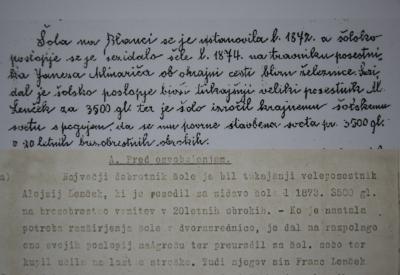 Šola na Blanci se je ustanovila l. 1872. a šolsko
poslopje se je sezidalo šele l. 1874. na travniku posestni-
ka Janeza Mlinariča ob okrajni cesti blizu železnice. Sezi-
dal je šolsko poslopje bivši tukajšnji veliki posestnik M.
Lenček za 3500 gl. ter je šolo izročil krajnemu šolskemu
svetu s pogojem, da se mu povrne stavbena svota pr. 3500 gl.
v 20 letnih brezobrestnih obrokih.
A. Pred osvobojenjem.
a) Največji dobrotnik šole je bil tukajšnji veleposestnik
Alojzij Lenček, ki je posodil za zidavo šole l 1873. 3500 gl.
na brezobrestno vrnitev v 20letnih obrokih. - Ko je nastala
potreba razširjenja šole v dvorazrednico, je dal na razpolago
eno svojih poslopij nasproti ter preuredil za šol. sobo ter
kupil učila na lastne stroške. Tudi njegov sin Franc Lenček